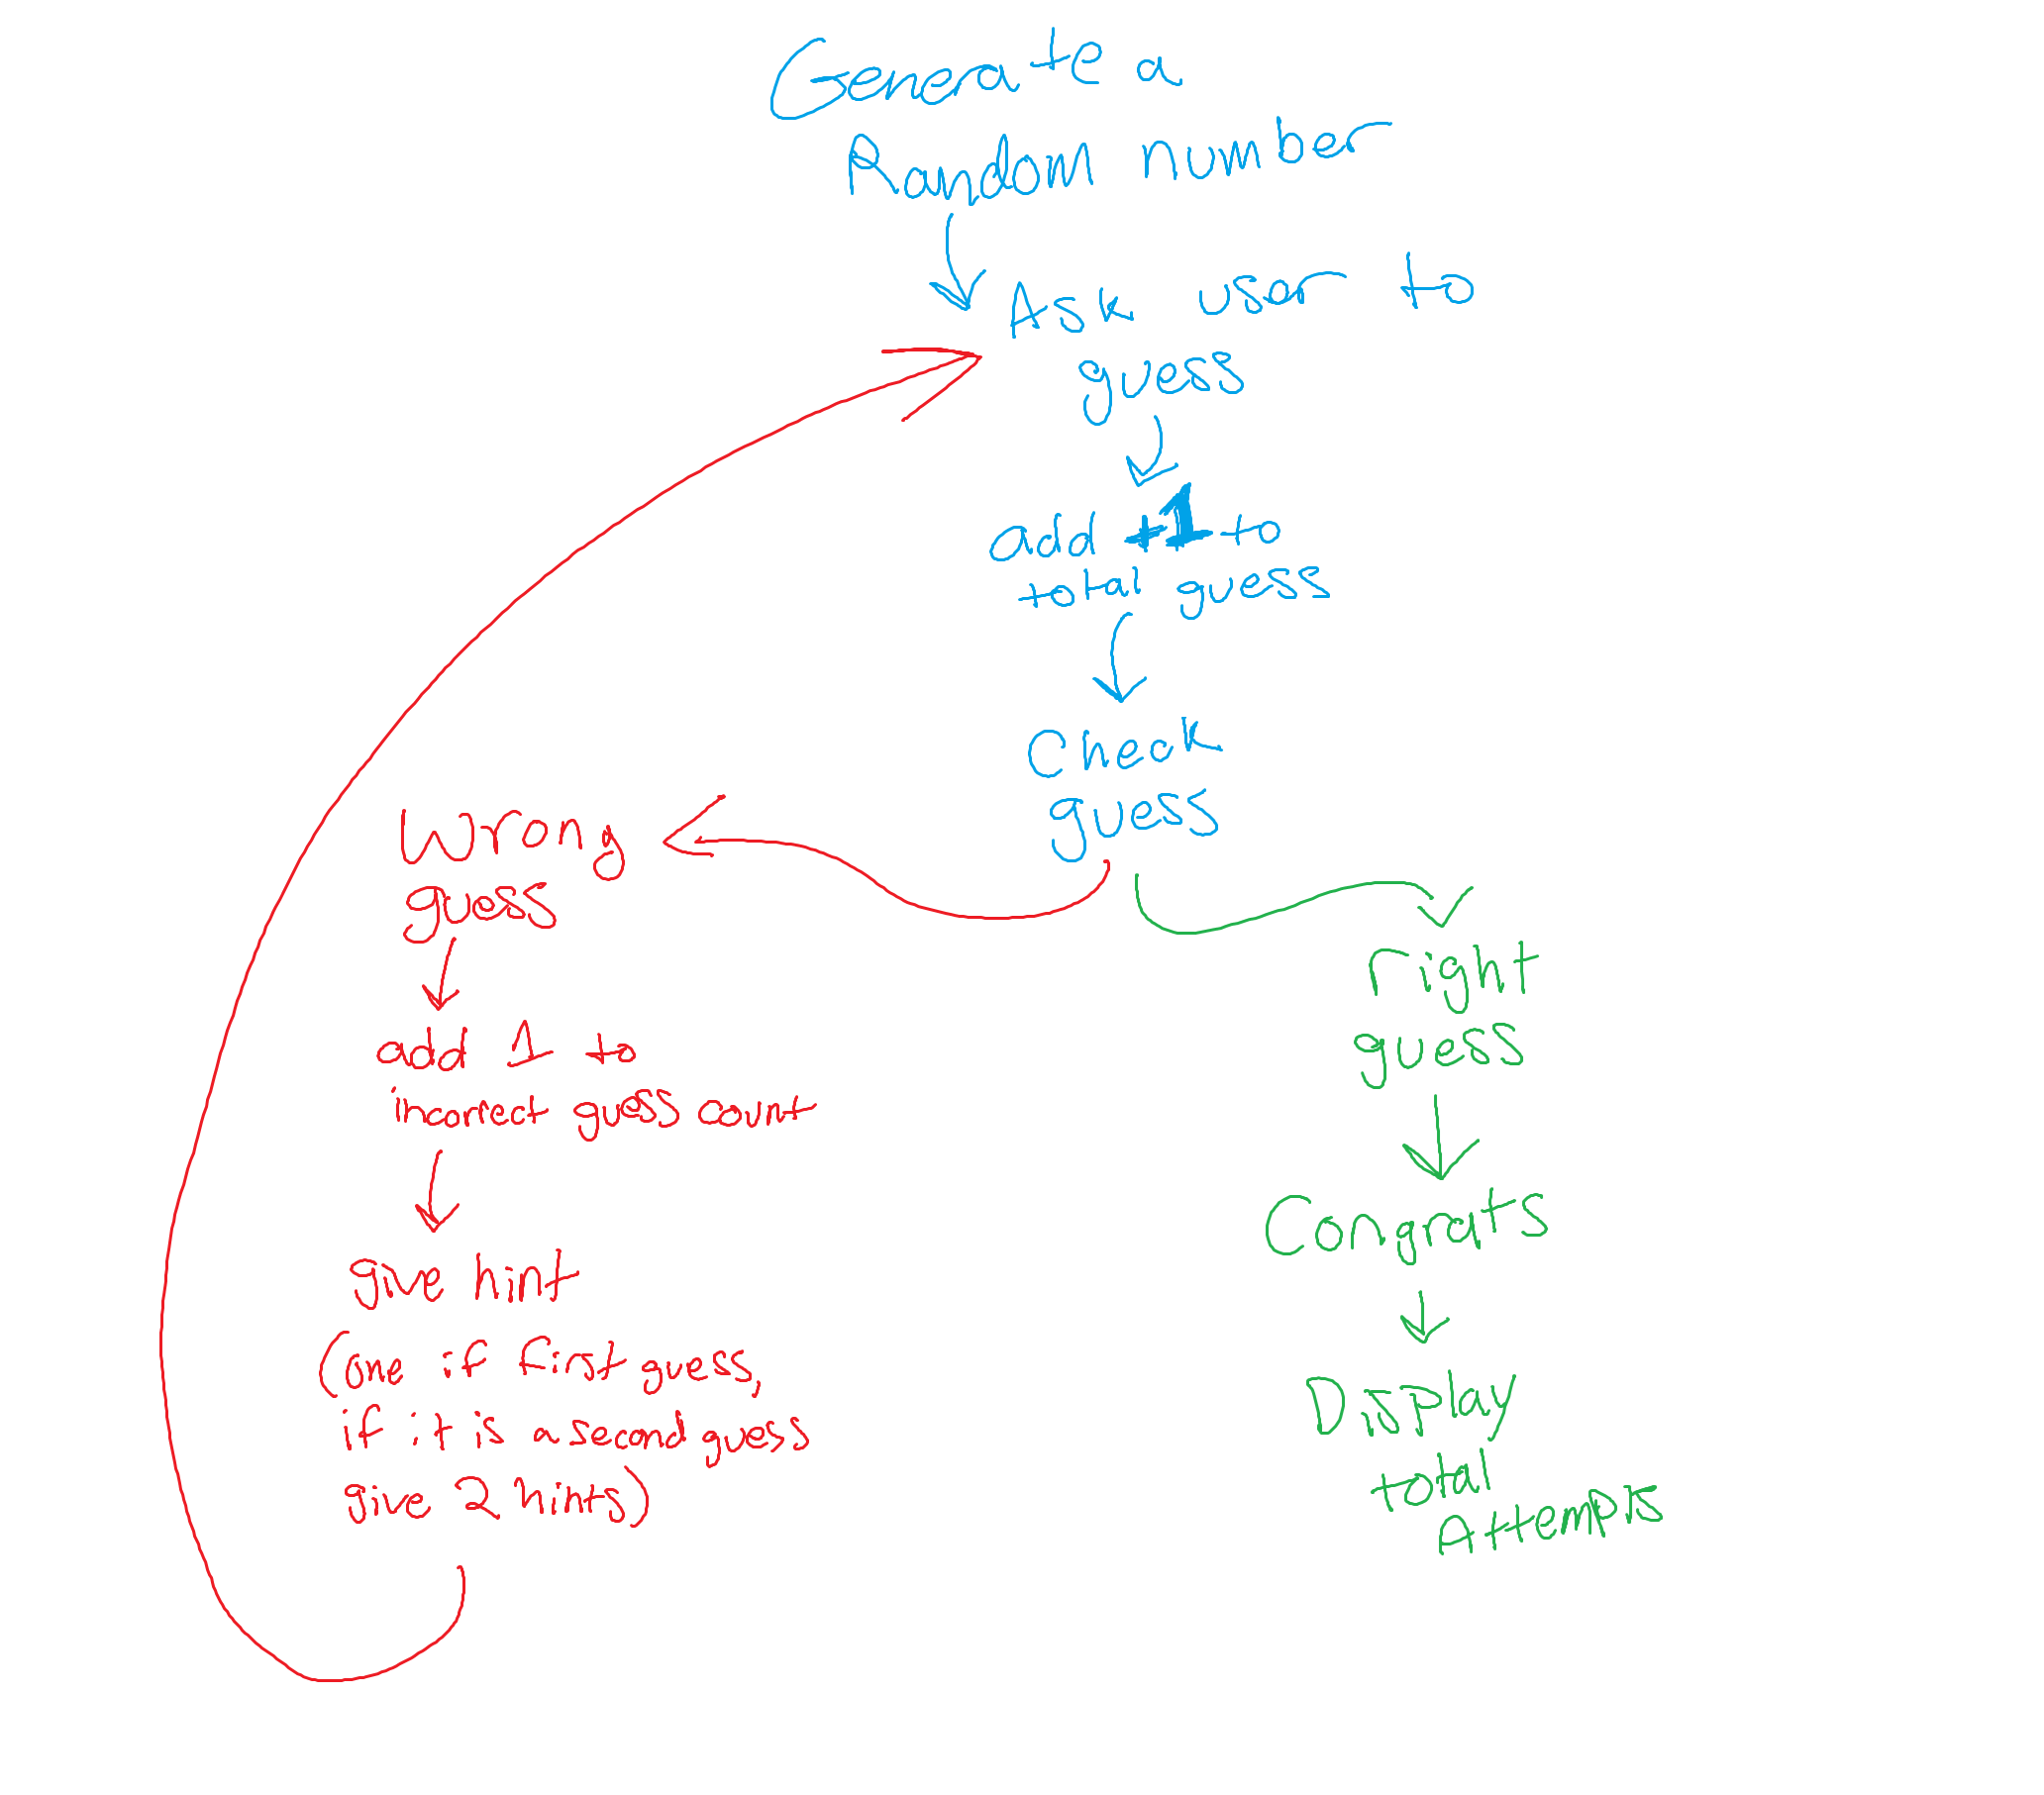 Generate a
Random number
Ask user to
guess
add +1 to
total guess
Check
guess
Wrong
guess
add 1 to
incorrect guess count
give hint
(one if first guess,
if it is a second guess
give 2 hints)
right
guess
Congrats
Display
total
Attempts